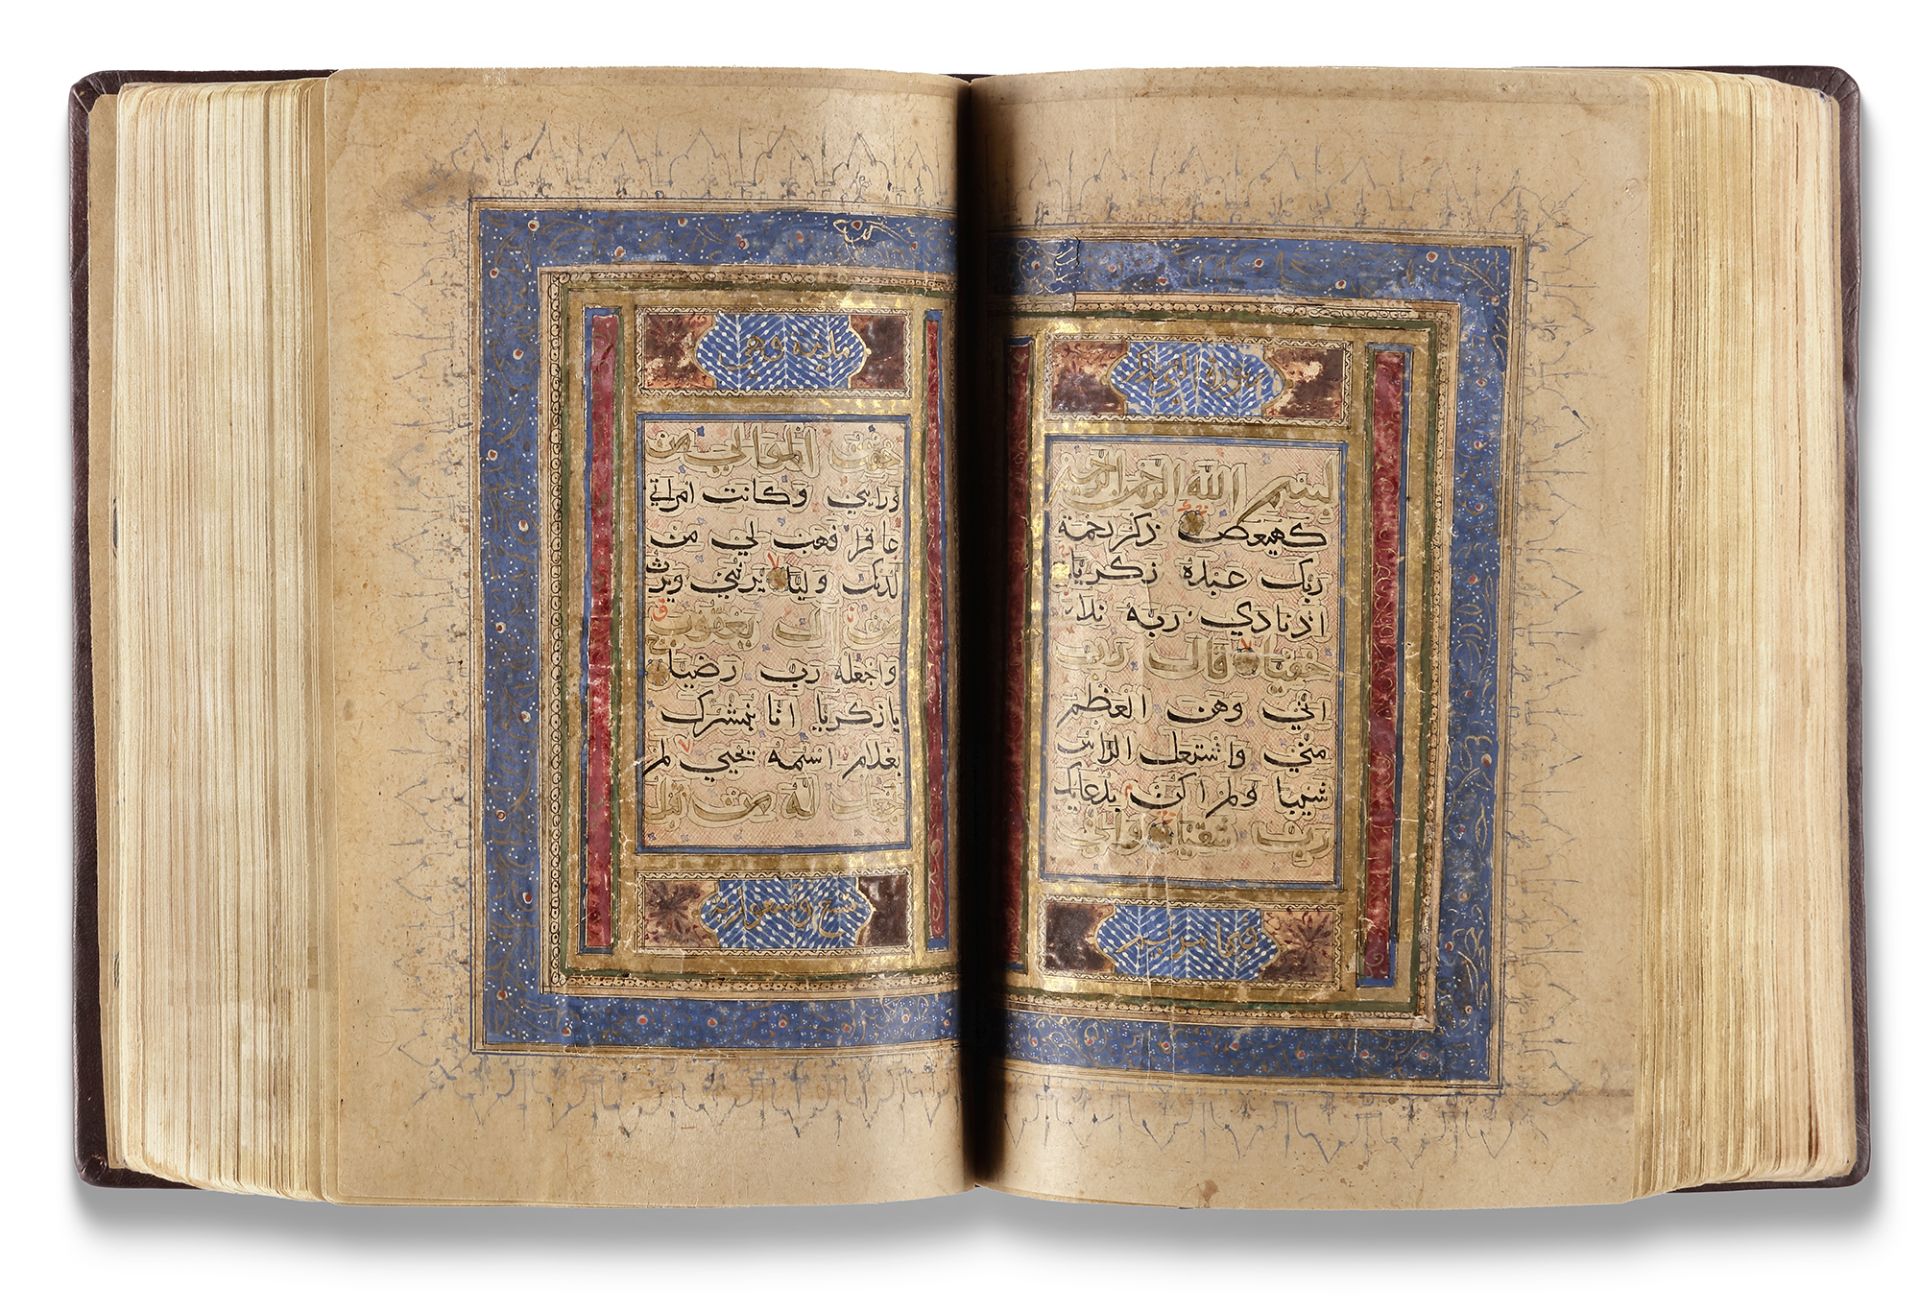 سورة
بسم الله الرحمن الرحيم
كهيعص ذكر رحمة
ربك عبده زكريا
اذ نادي ربه نداء
خفيا قال رب
اني وهن العظم
مني واشتعل الراس
شيبا ولم اكن بدعايك
رب شقيا واني
وهي
خفت الموالي من
ورايي وكانت امراتي
عاقرا فهب لي من
لدنك وليا يرثني ويرث
من آل يعقوب
واجعله رب رضيا
يا زكريا انا نبشرك
بغلام اسمه يحيي لم
نجعل له من قبل
تسع وتسعون اية